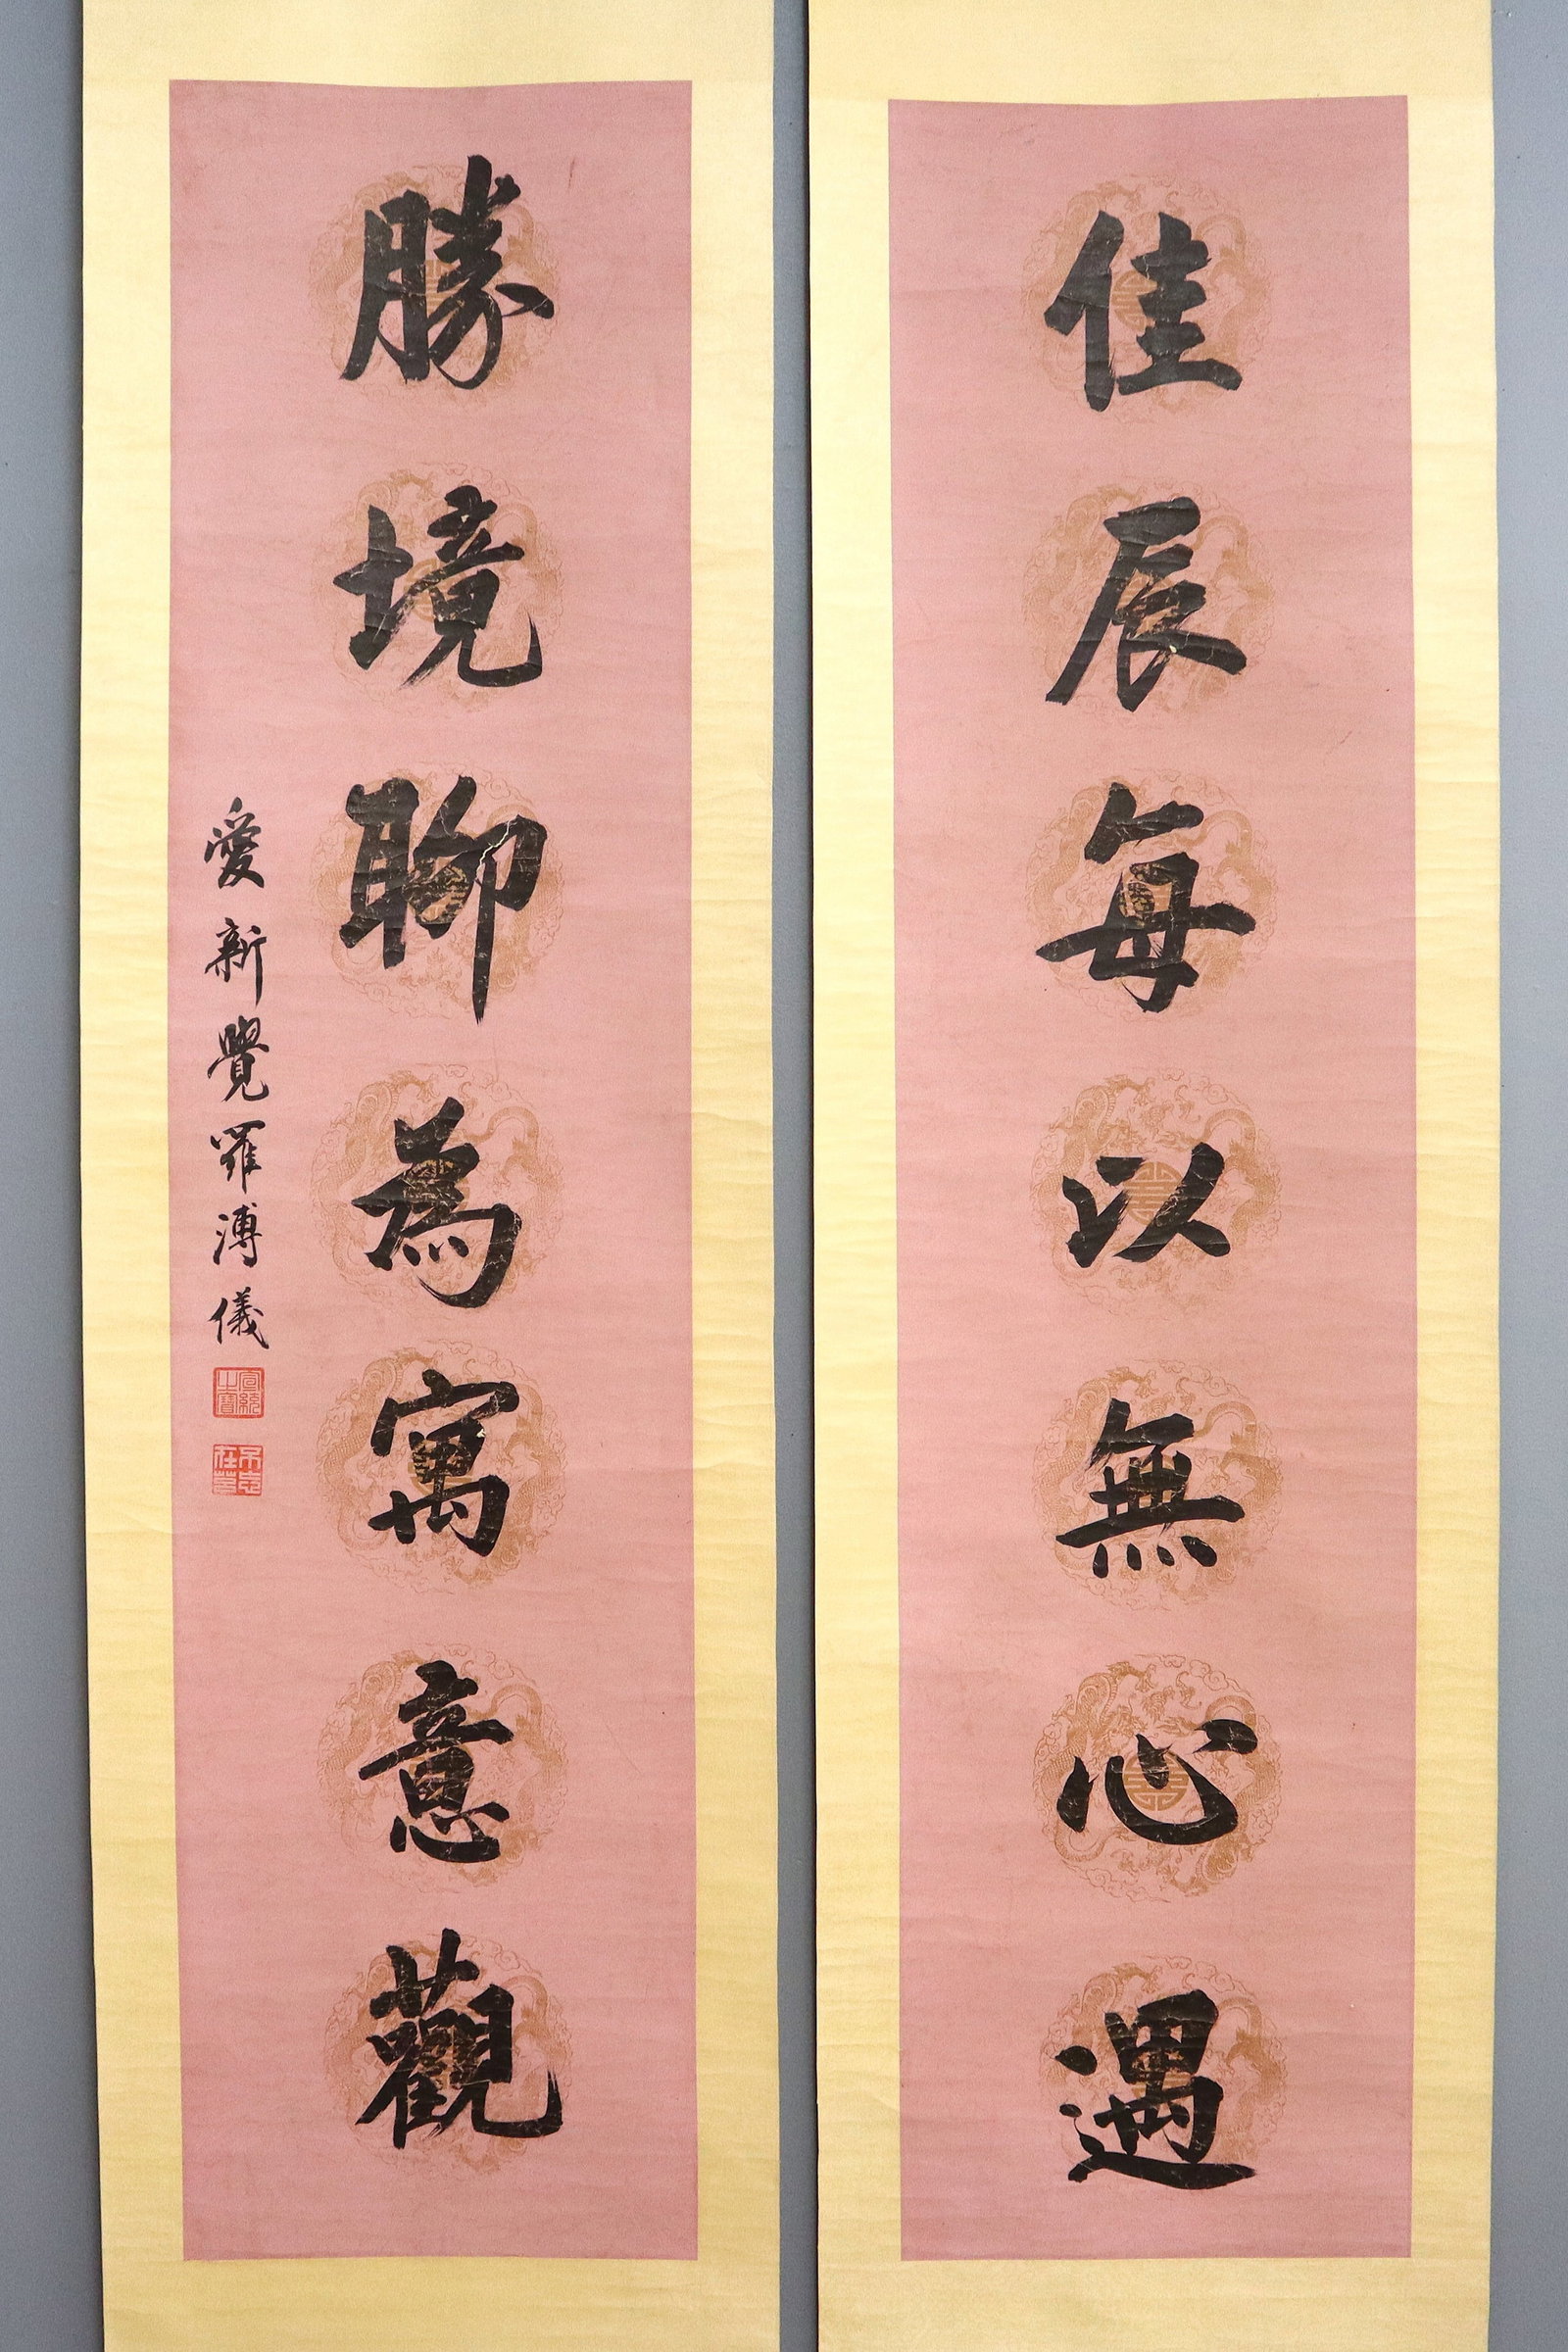 佳辰每以無心遇
勝境聊為寓意觀
愛新覺羅溥儀
宣統之寶